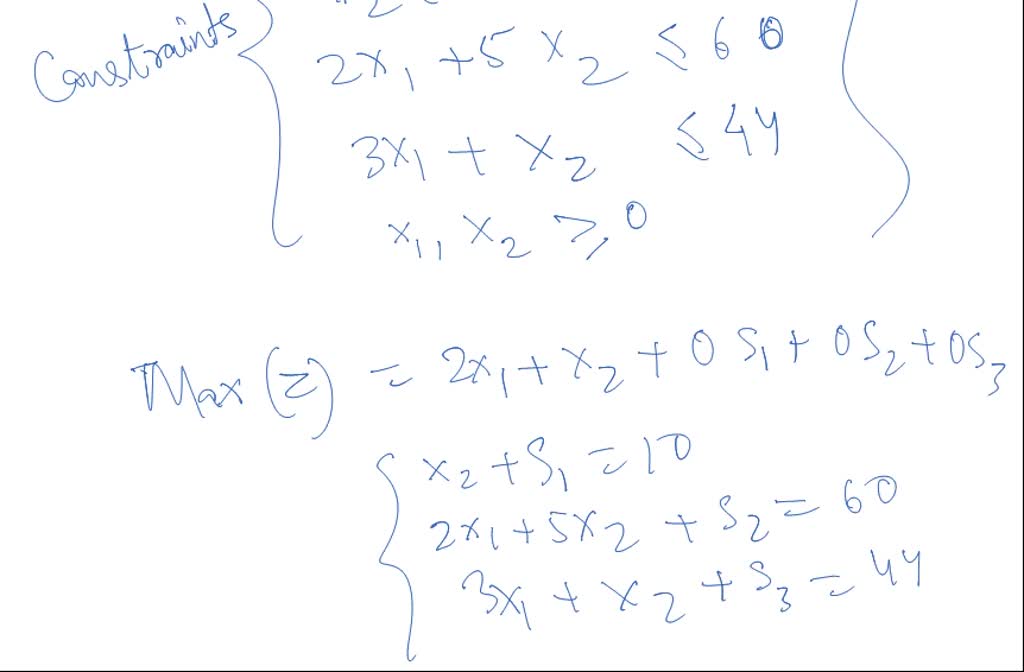 Constraints
2x₁ + 5x₂ ≤ 60
3x₁ + x₂ ≤ 44
x₁, x₂ ≥ 0
Max (z) = 2x₁ + x₂ + 0S₁ + 0S₂ + 0S₃
x₂ + S₁ = 10
2x₁ + 5x₂ + S₂ = 60
3x₁ + x₂ + S₃ = 44